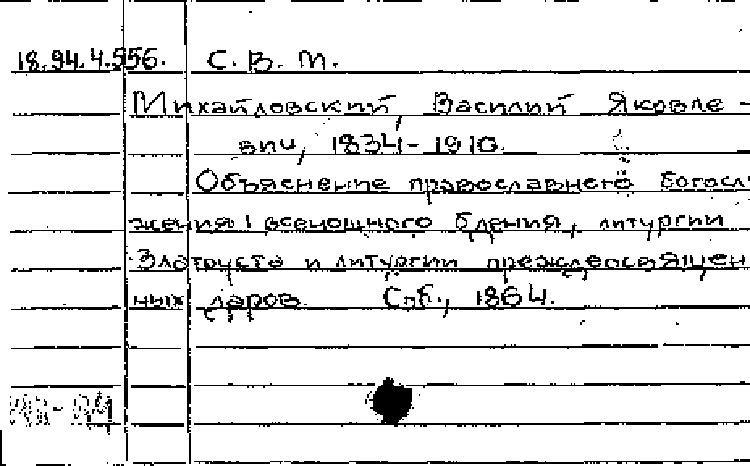 18.94.4.556. С. В. М.
Михайловский, Василий Яковле-
вич, 1834-1910.
Объяснение православнего богослу
жения: всенощного бдения, литургии
Златоуста и литургии преждеосвящен
ных даров. Спб., 1864.